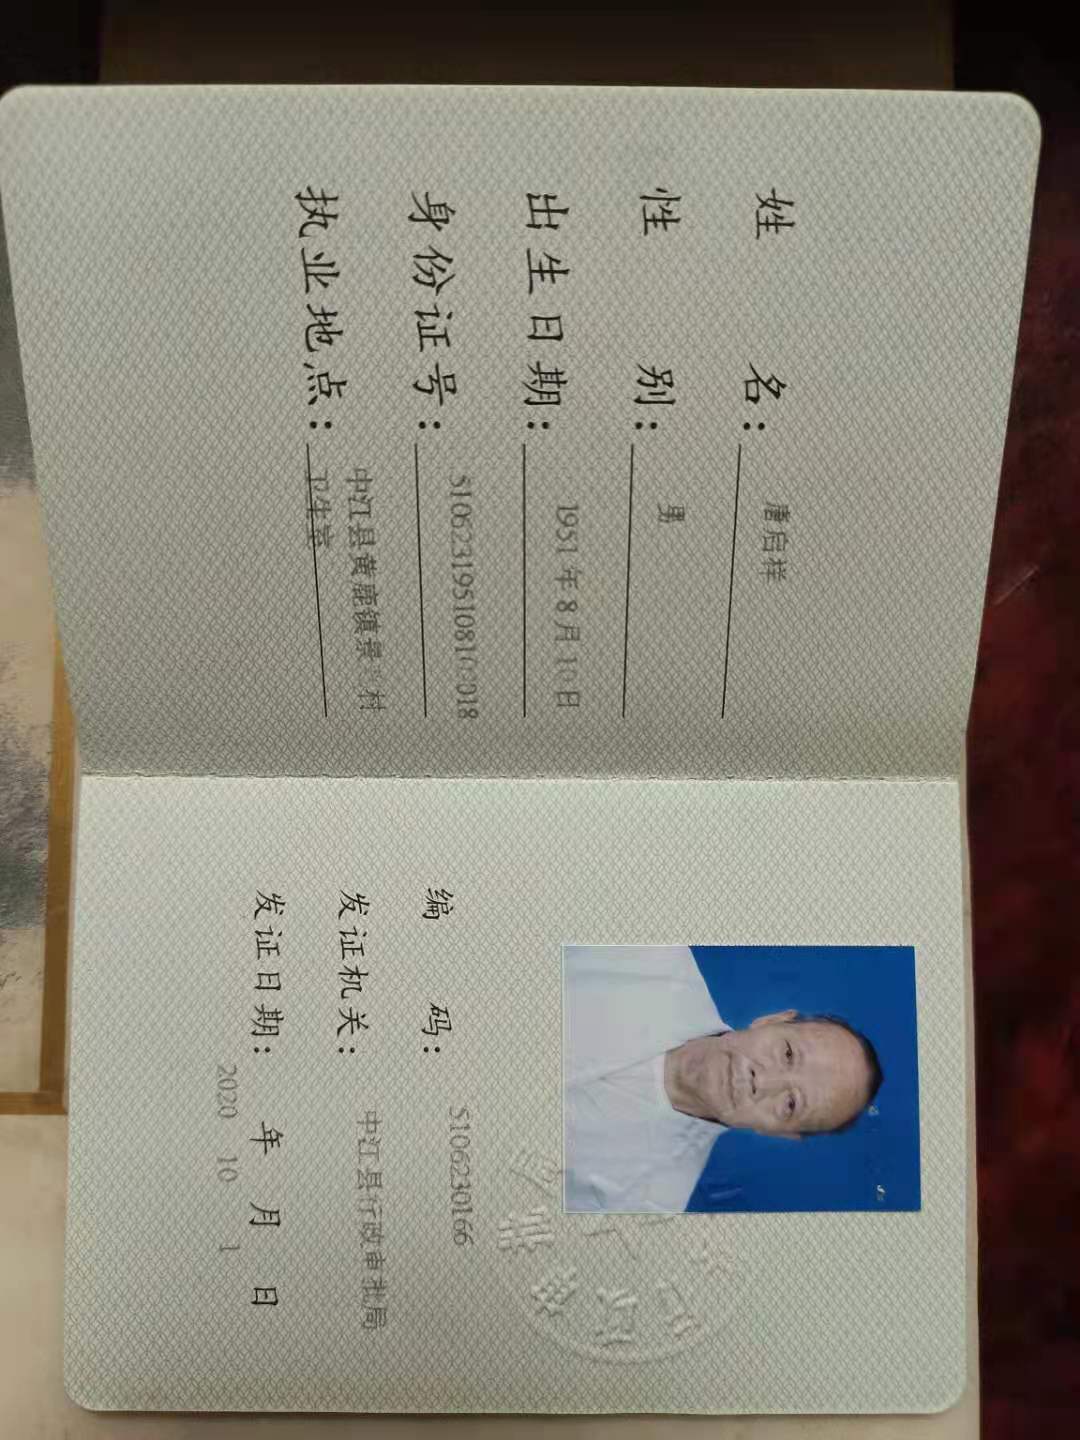 姓 名： 唐启样
性 别： 男
出生日期： 1951 年 8 月 10 日
身份证号：
执业地点： 中江县黄鹿镇景 村
卫生室
编 码： 5106230166
发证机关： 中江县行政审批局
发证日期： 2020 年 10 月 1 日